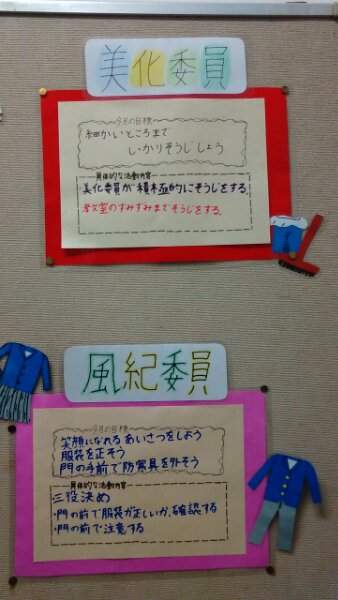 美化委員
今月の目標
細かいところまで
しっかりそうじしよう
具体的な活動内容
美化委員が積極的にそうじをする。
教室のすみずみまでそうじをする。
風紀委員
今月の目標
笑顔になれるあいさつをしよう
服装を正そう
門の手前で防寒具を外そう
具体的な活動内容
三役決め
・門の前で服装が正しいか、確認する
・門の前で注意する